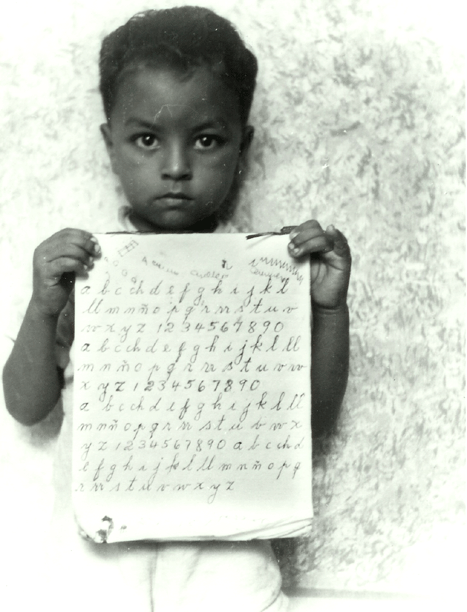 a b c ch d e f g h i j k l
ll m n ñ o p q r rr s t u v
w x y z 1 2 3 4 5 6 7 8 9 0
a b c ch d e f g h i j k l ll
m n ñ o p q r rr s t u v w
x y z 1 2 3 4 5 6 7 8 9 0
a b c ch d e f g h i j k l ll
m n ñ o p q r rr s t u v w x
y z 1 2 3 4 5 6 7 8 9 0 a b c ch d
e f g h i j k l ll m n ñ o p q
r rr s t u v w x y z